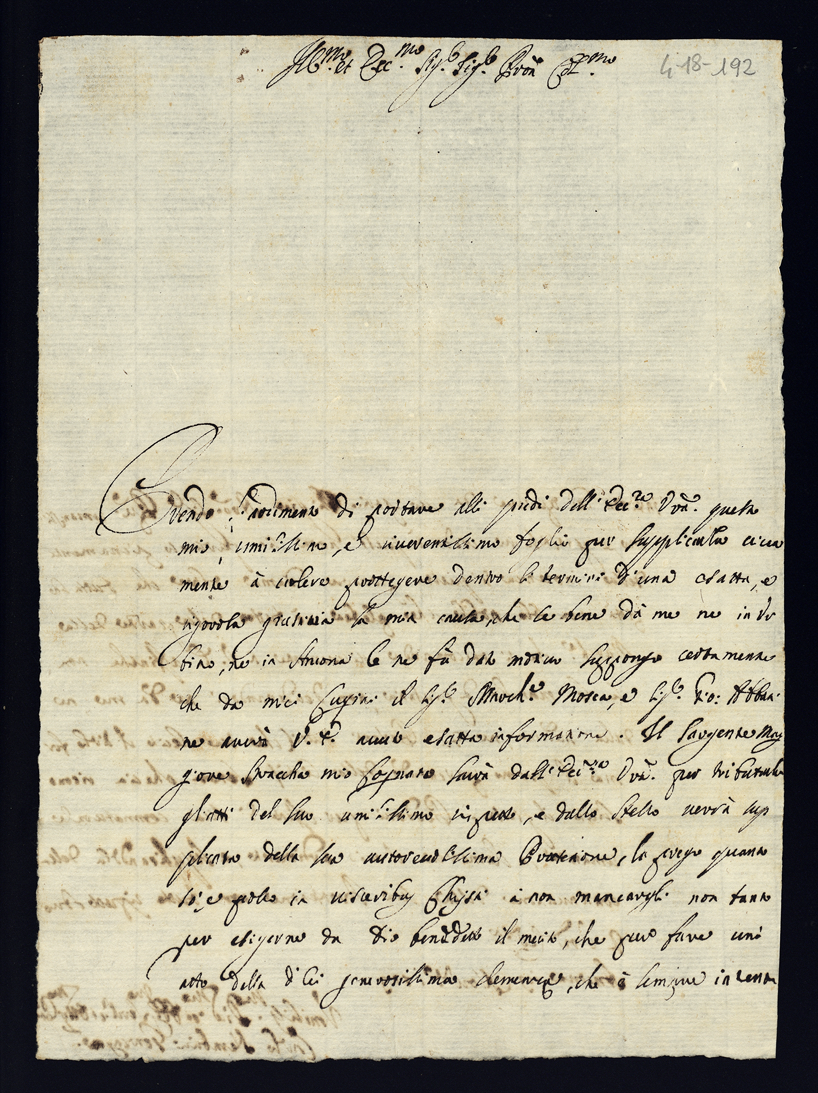 Ill.mo et Ecc.mo Sig.r Sig.r Pron Col.mo
4-18-192
Prendo l'ardimento di portare alli piedi dell'Ecc.za Vra. questo
mio umilissimo, e riverentissimo foglio per supplicarla
mente à volere proteggere dentro li termini d'una esatta, e
rigorosa giustitia la mia causa, che se bene dà me ne in Ur
bino, ne in Ancona se ne fù dato motivo suppongo certamente
che da miei Cugini il Sig.r March.e Mosca, e Sig.r Gio: Abba
ne avrà V. E. avuto esatta informazione. Il Sargente Mag
giore mio Cognato sarà dall'Ecc.za Vra. per tributarle
gl'atti del suo umilissimo rispetto, e dallo stesso verrà sup
plicata della sua autorevolissima Protezione, la prego quanto
sò, e posso in visceribus Chrsti à non mancargli non tanto
per esigerne da Dio benedetto il merito, che può fare un'
atto della di lei generosissima clemenza, che è sempre intenta